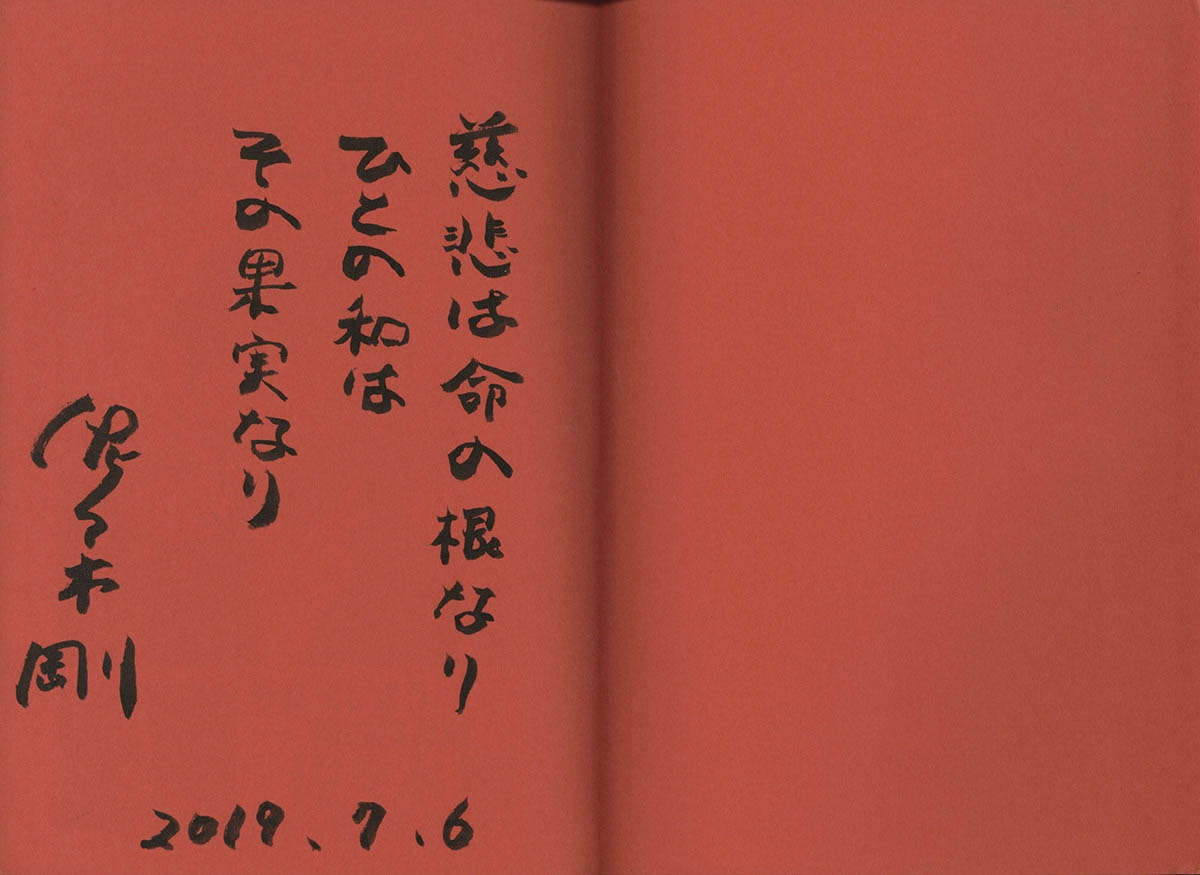 慈悲は命の根なり
ひとの和は
その果実なり
佐々木剛
2019、7、6